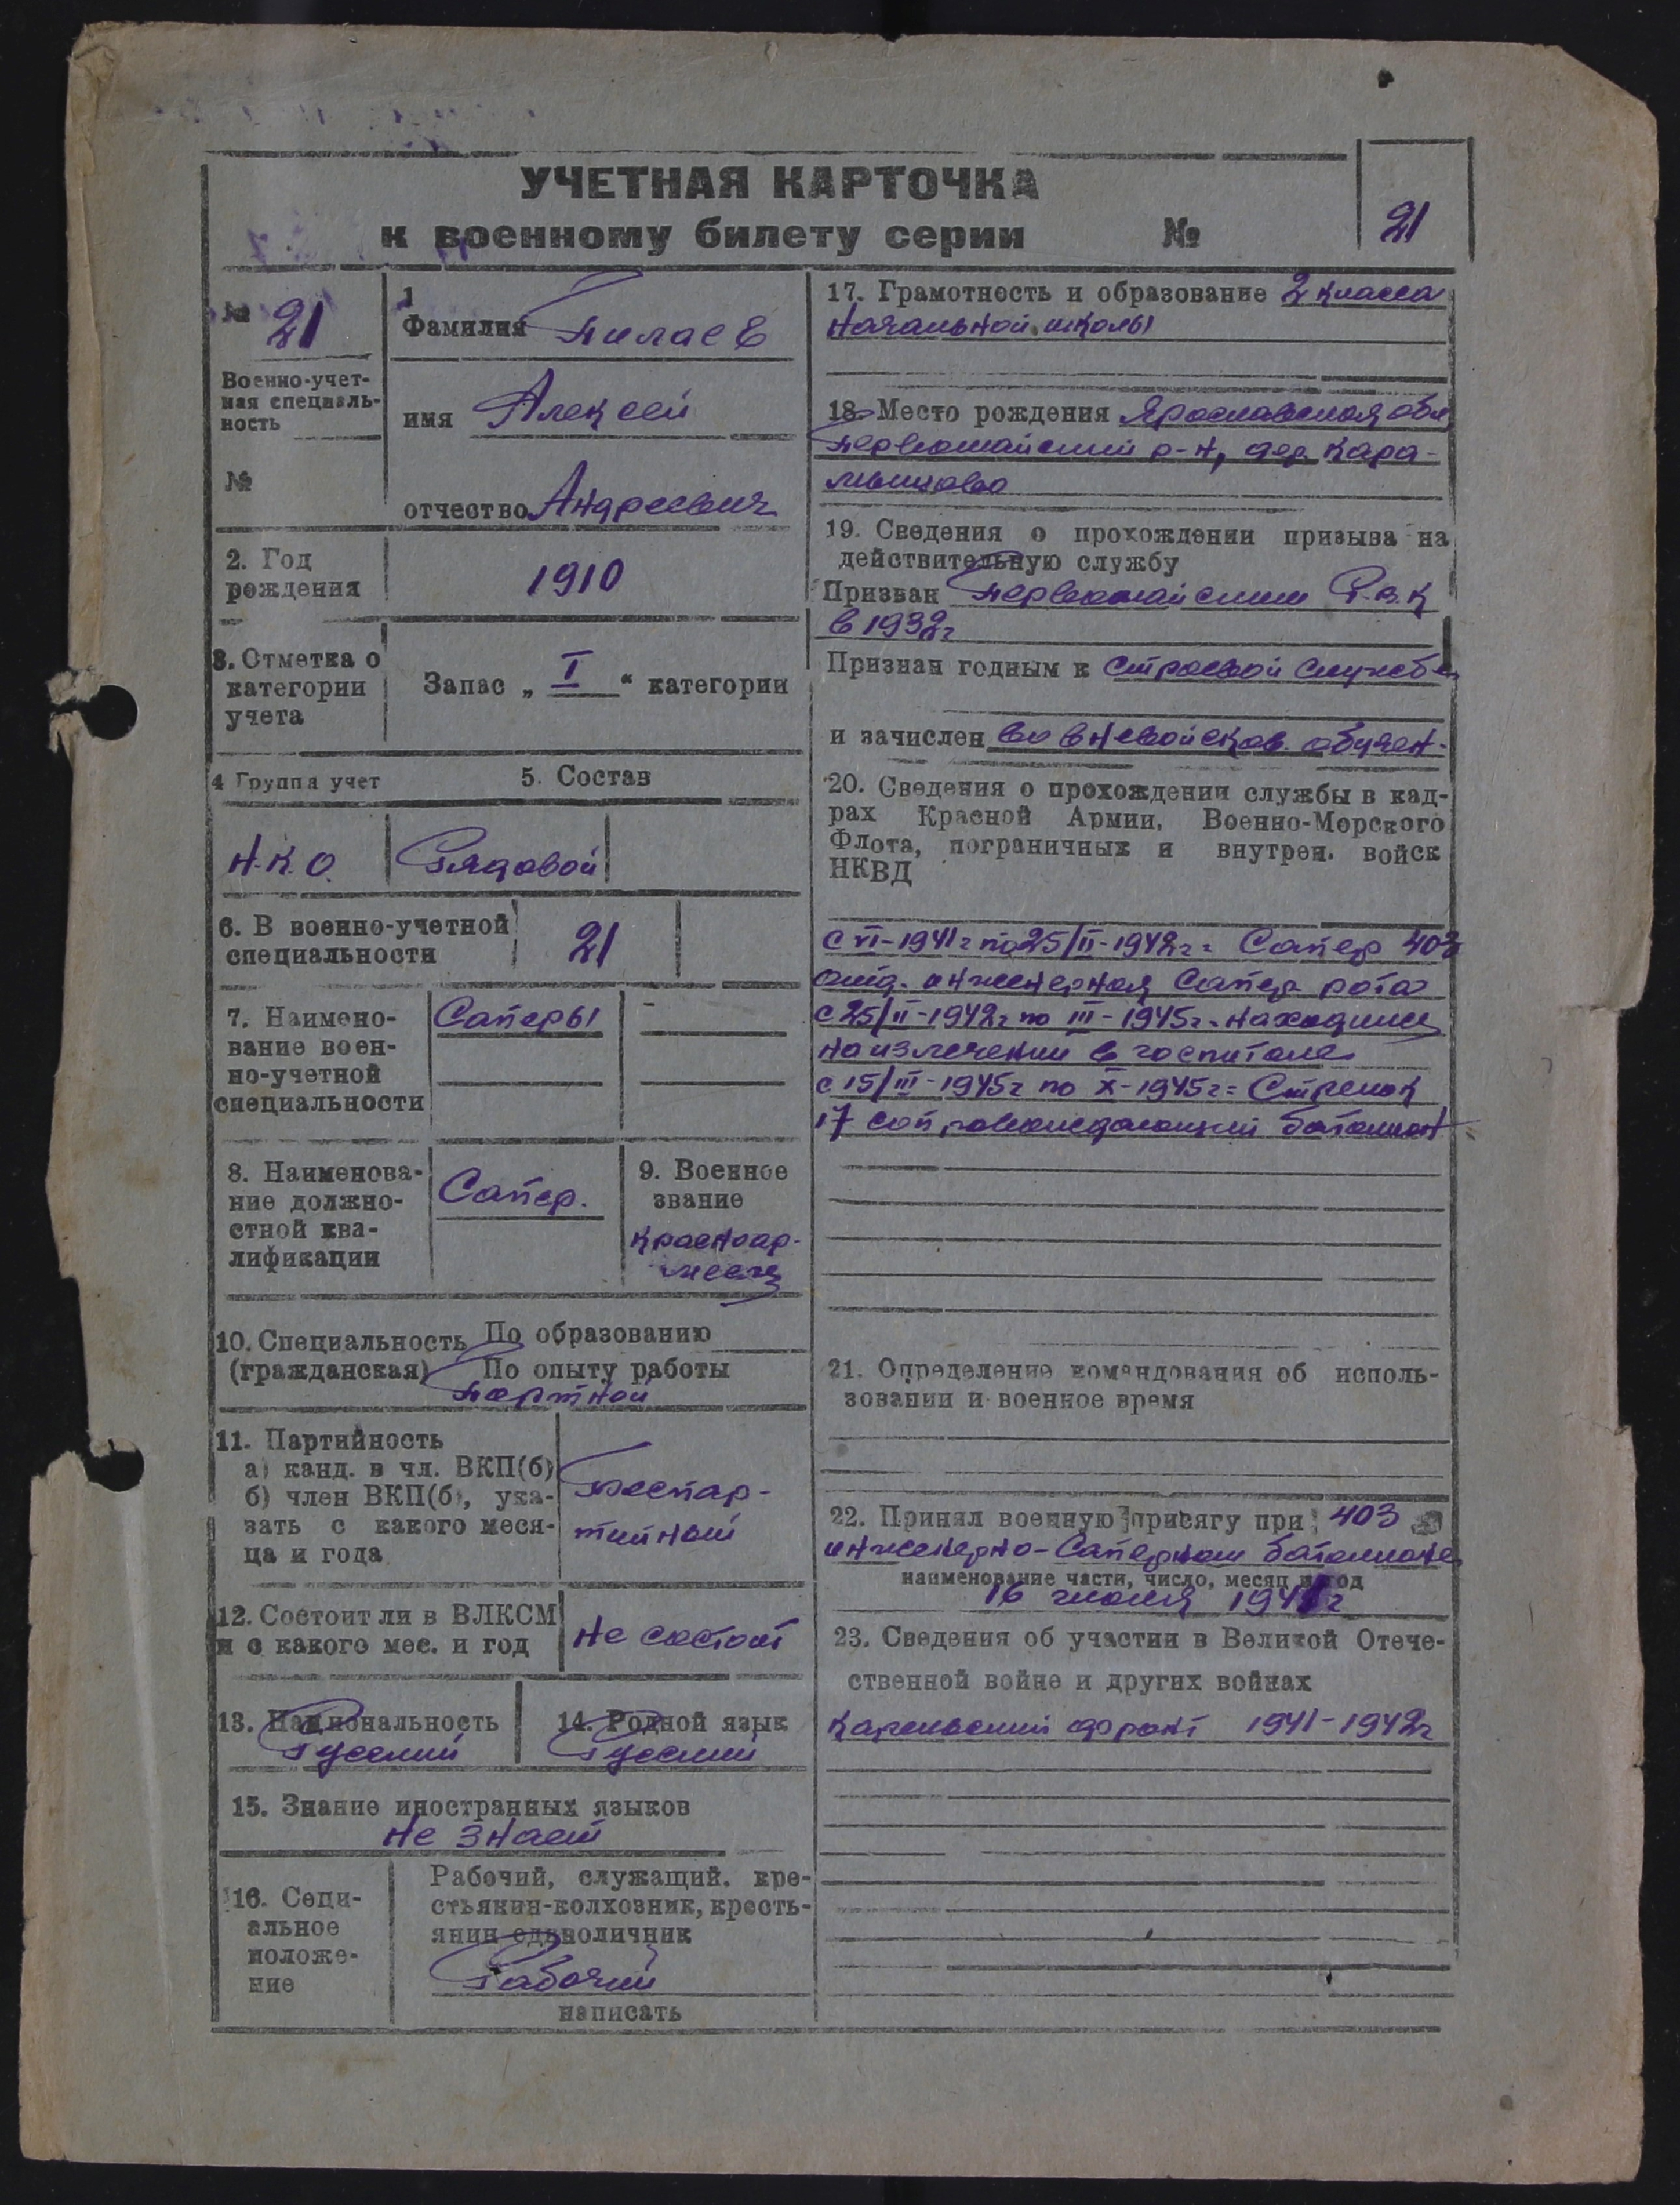 УЧЕТНАЯ КАРТОЧКА
к военному билету серии №
21
№ 21
Военно-учет-
ная специаль-
ность
№
1
Фамилия Пилаев
имя Алексей
отчество Андреевич
2. Год
рождения
1910
3. Отметка о
категории
учета
Запас „ I “ категории
4 Группа учет
5. Состав
Н.К.О.
Рядовой
6. В военно-учетной
специальности
21
7. Наимено-
вание воен-
но-учетной
специальности
Саперы
8. Наименова-
ние должно-
стной ква-
лификации
Сапер.
9. Военное
звание
Красноар-
меец
10. Специальность По образованию
(гражданская) По опыту работы
портной
11. Партийность
а) канд. в чл. ВКП(б)
б) член ВКП(б), ука-
зать с какого меся-
ца и года
Беспар-
тийный
12. Состоит ли в ВЛКСМ
и с какого мес. и год
не состоит
13. Национальность
Русский
14. Родной язык
Русский
15. Знание иностранных языков
не знает
16. Соци-
альное
положе-
ние
Рабочий, служащий, кре-
стьянин-колхозник, кресть-
янин единоличник
Рабочий
написать
17. Грамотность и образование 2 класса
начальной школы
18. Место рождения Ярославская обл
Первомайский р-н, дер. Кара-
мышево
19. Сведения о прохождении призыва на
действительную службу
Призван Первомайским Р.В.К
в 1932г
Признан годным к строевой службе
и зачислен во вневойсков. обучен-
20. Сведения о прохождении службы в кад-
рах Красной Армии, Военно-Морского
Флота, пограничных и внутрен. войск
НКВД
с VI-1941г по 25/II-1942г = Сапер 403
отд. инженерная Сапер рота
с 25/II-1942г по III-1945г. находился
на излечении в госпитале
с 15/III-1945г по X-1945г = Стрелок
17 сопровождающий батальон
21. Определение командования об исполь-
зовании и военное время
22. Принял военную присягу при 403
инженерно-Саперном батальоне
наименование части, число, месяц и год
16 июля 1941г
23. Сведения об участии в Великой Отече-
ственной войне и других войнах
Карельский фронт 1941-1942г